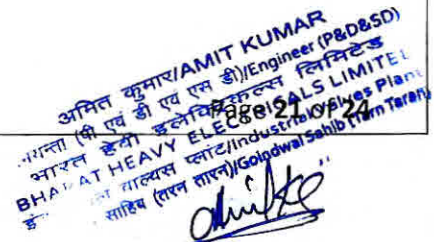 अमित कुमार/AMIT KUMAR
(पी एवं डी एवं एस डी)/Engineer (P&D&SD)
भारत हेवी इलेक्ट्रिकल्स लिमिटेड
BHARAT HEAVY ELECTRICALS LIMITED
वाल्वस प्लांट/Industrial Valves Plant
साहिब (तरन तारन)/Goindwal Sahib (Tarn Taran)
Page 21 of 24